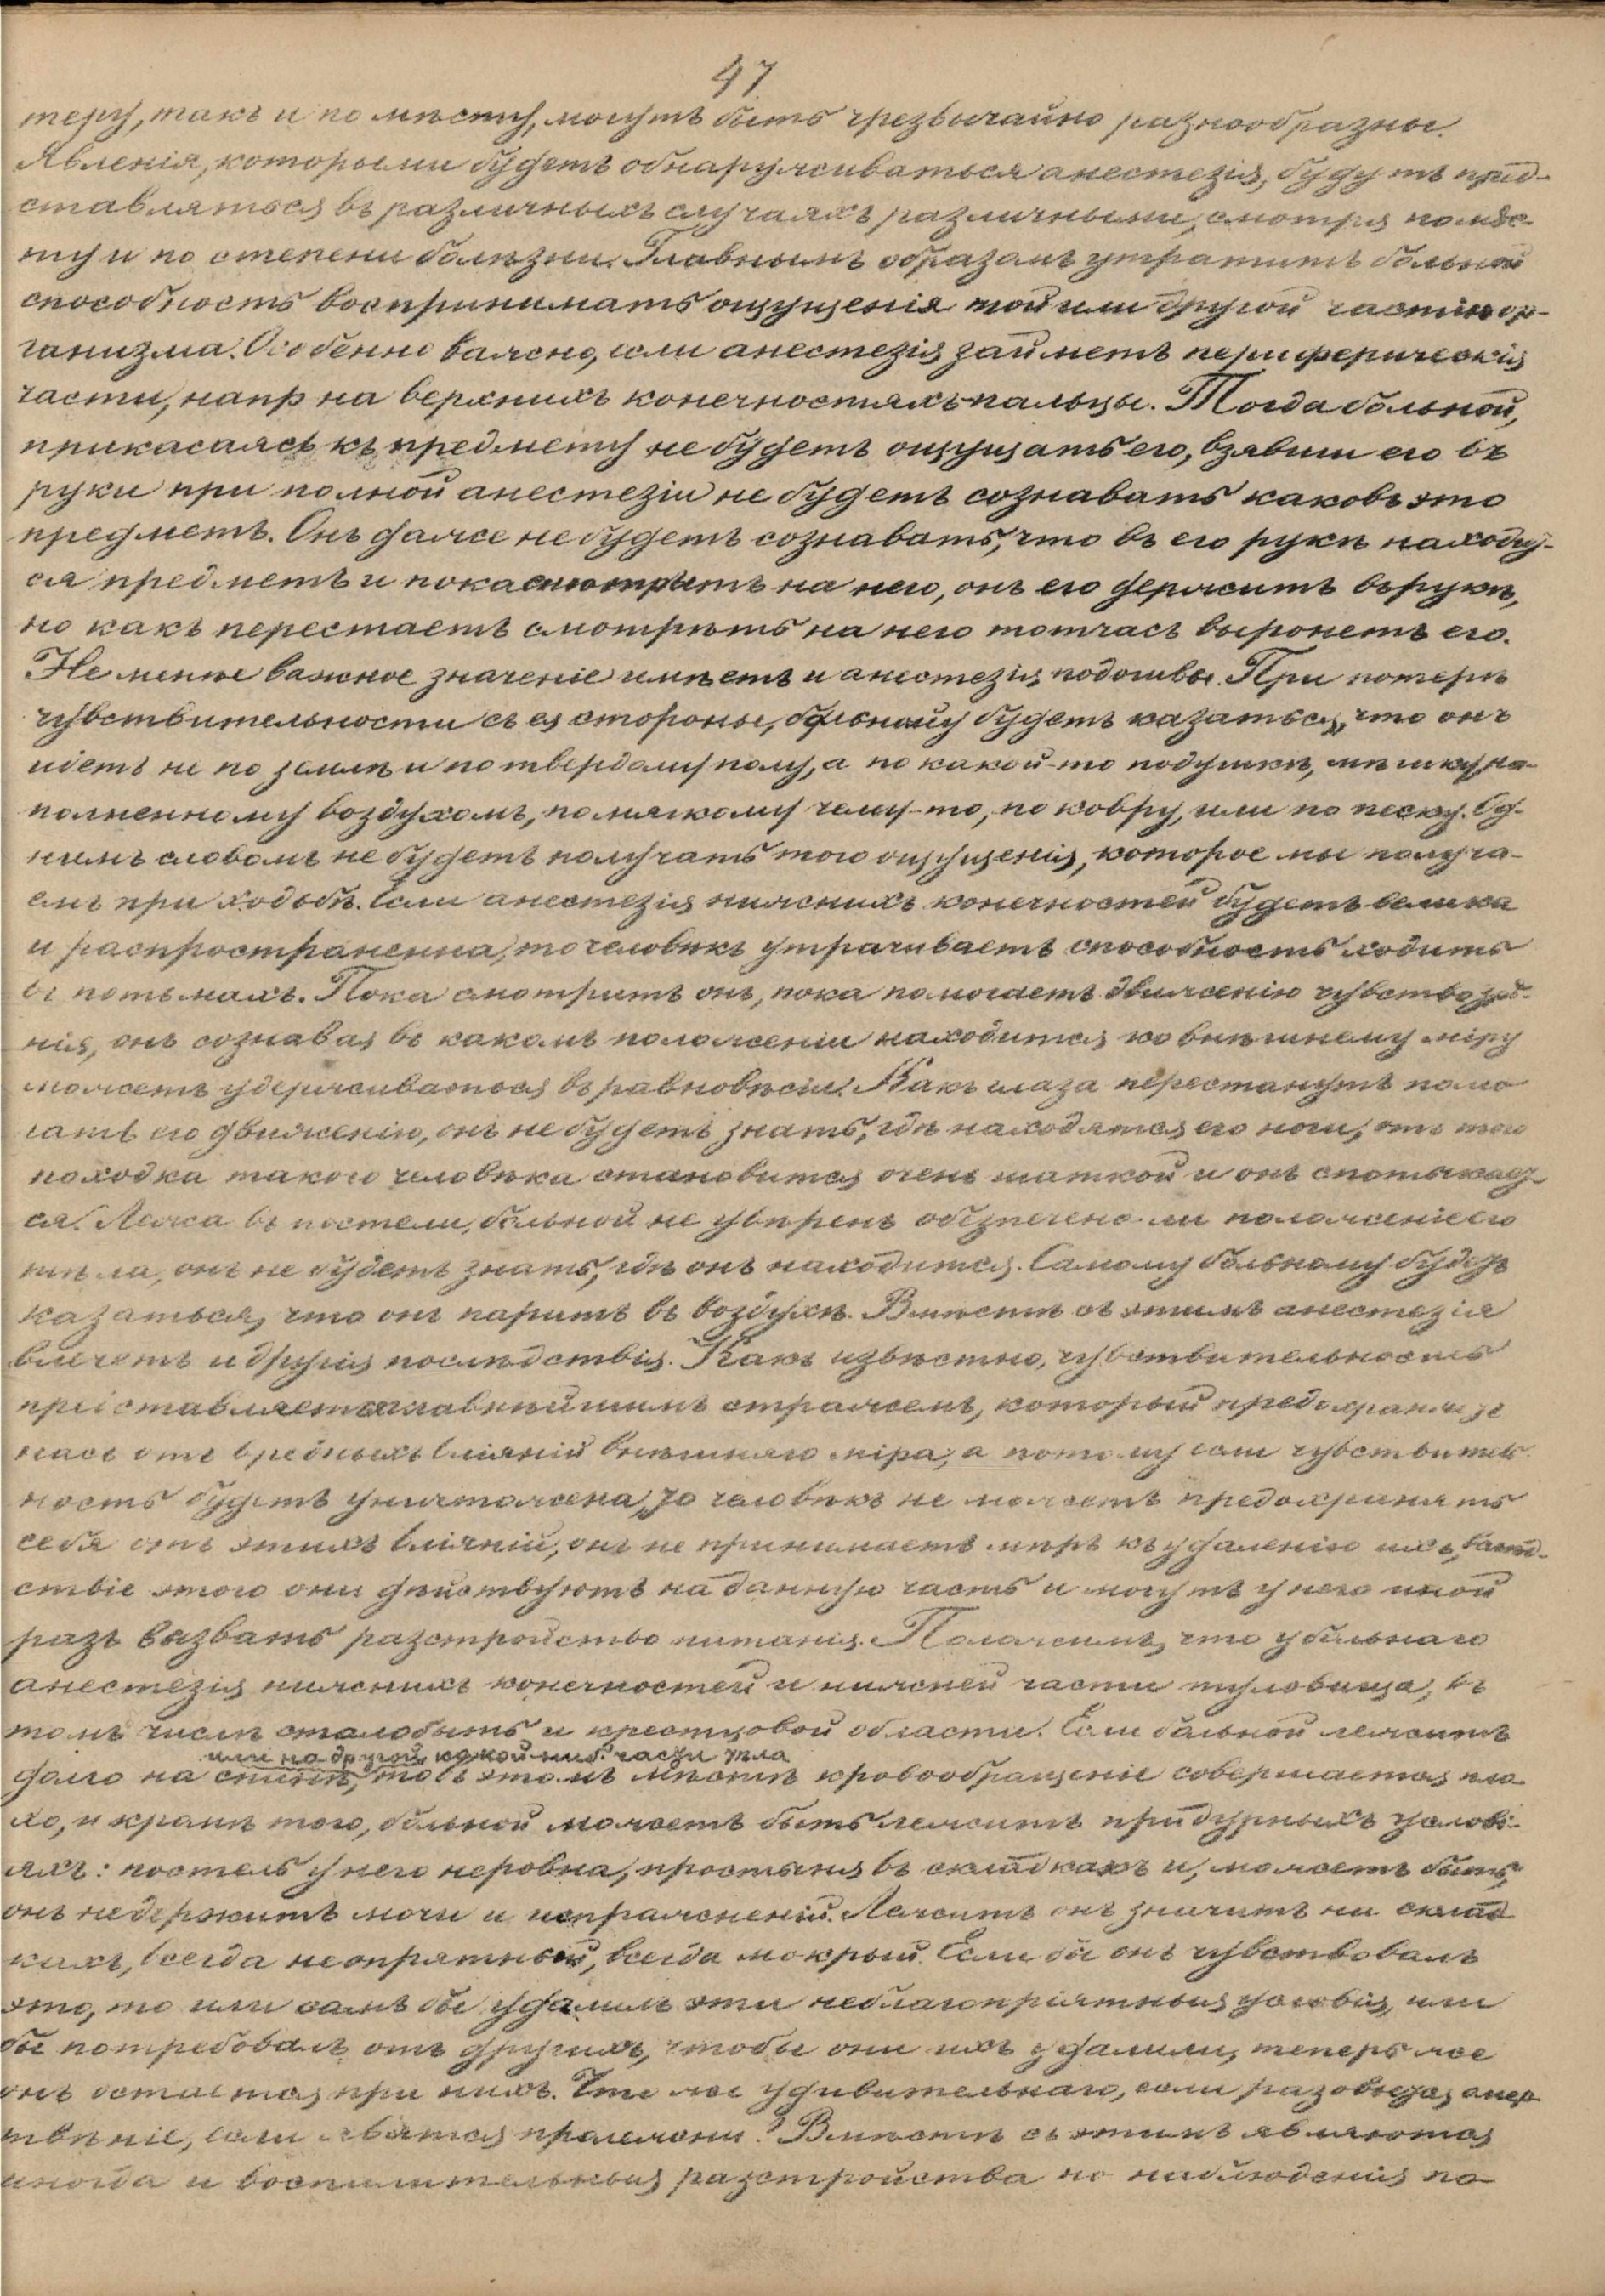 47
теру, такъ и по мѣсту, могутъ быть чрезвычайно разнообразные.
Явленія, которыми будетъ обнаруживаться анестезія, будутъ пред-
ставляться въ различныхъ случаяхъ различными, смотря по мѣс-
ту и по степени болѣзни. Главнымъ образомъ утратитъ больной
способность воспринимать ощущенія той или другой частію ор-
ганизма. Особенно важно, если анестезія займетъ периферическія
части, напр на верхнихъ конечностяхъ пальцы. Тогда больной,
прикасаясь къ предмету не будетъ ощущать его, взявши его въ
руки при полной анестезіи не будетъ сознавать каковъ это
предметъ. Онъ даже не будетъ сознавать, что въ его рукѣ находит-
ся предметъ и пока смотритъ на него, онъ его держитъ въ рукѣ,
но какъ перестаетъ смотрѣть на него тотчасъ выронетъ его.
Не менѣе важное значеніе имѣетъ и анестезія подошвы. При потерѣ
чувствительности съ ея стороны, больному будетъ казаться, что онъ
идетъ не по землѣ и по твердому полу, а по какой-то подушкѣ, мѣшку, на-
полненному воздухомъ, по мягкому чему-то, по ковру, или по песку. Од-
нимъ словомъ не будетъ получать того ощущенія, которое мы получа-
емъ при ходьбѣ. Если анестезія нижнихъ конечностей будетъ велика
и распространенна, то человѣкъ утрачиваетъ способность ходить
въ потьмахъ. Пока смотритъ онъ, пока помогаетъ движенію чувство зрѣ-
нія, онъ сознавая въ какомъ положеніи находится ко внѣшнему міру
можетъ удерживаться въ равновѣсіи. Какъ глаза перестанутъ помо
гать его движенію, онъ не будетъ знать, гдѣ находятся его ноги, отъ того
походка такого человѣка становится очень шаткой и онъ спотыкает-
ся. Лежа въ постели, больной не увѣренъ обезпечено ли положеніе его
тѣла, онъ не будетъ знать, гдѣ онъ находится. Самому больному будетъ
казаться, что онъ паритъ въ воздухѣ. Вмѣстѣ съ этимъ анестезія
влечетъ и другія послѣдствія. Какъ извѣстно, чувствительность
представляется главнѣйшимъ стражемъ, который предохраняетъ
насъ отъ вредныхъ вліяній внѣшняго міра, а потому если чувствитель
ность будетъ уничтожена, то человѣкъ не можетъ предохранять
себя отъ этихъ вліяній, онъ не принимаетъ мѣръ къ удаленію ихъ, вслѣд-
ствіе этого они дѣйствуютъ на данную часть и могутъ у него иной
разъ вызвать разстройство питанія. Положимъ, что у больнаго
анестезія нижнихъ конечностей и нижней части туловища, въ
томъ числѣ сталобыть и крестцовой области. Если больной лежитъ
или на другой какой ниб. части тѣла
долго на спинѣ, то въ этомъ мѣстѣ кровообращеніе совершается пло-
хо, и кромѣ того, больной можетъ быть лежитъ при дурныхъ услові-
яхъ: постель у него неровна, простыня въ складкахъ и, можетъ быть,
онъ не держитъ мочи и испражненій. Лежитъ онъ значитъ на склад
кахъ, всегда неопрятный, всегда мокрый. Если бы онъ чувствовалъ
это, то или самъ бы удалилъ эти неблагопріятныя условія, или
бы потребовалъ отъ другихъ, чтобы они ихъ удалили, теперь же
онъ остается при нихъ. Что же удивительнаго, если разовьется омер-
твѣніе, если явятся пролежни? Вмѣстѣ съ этимъ являются
иногда и воспалительныя разстройства но наблюденія по-